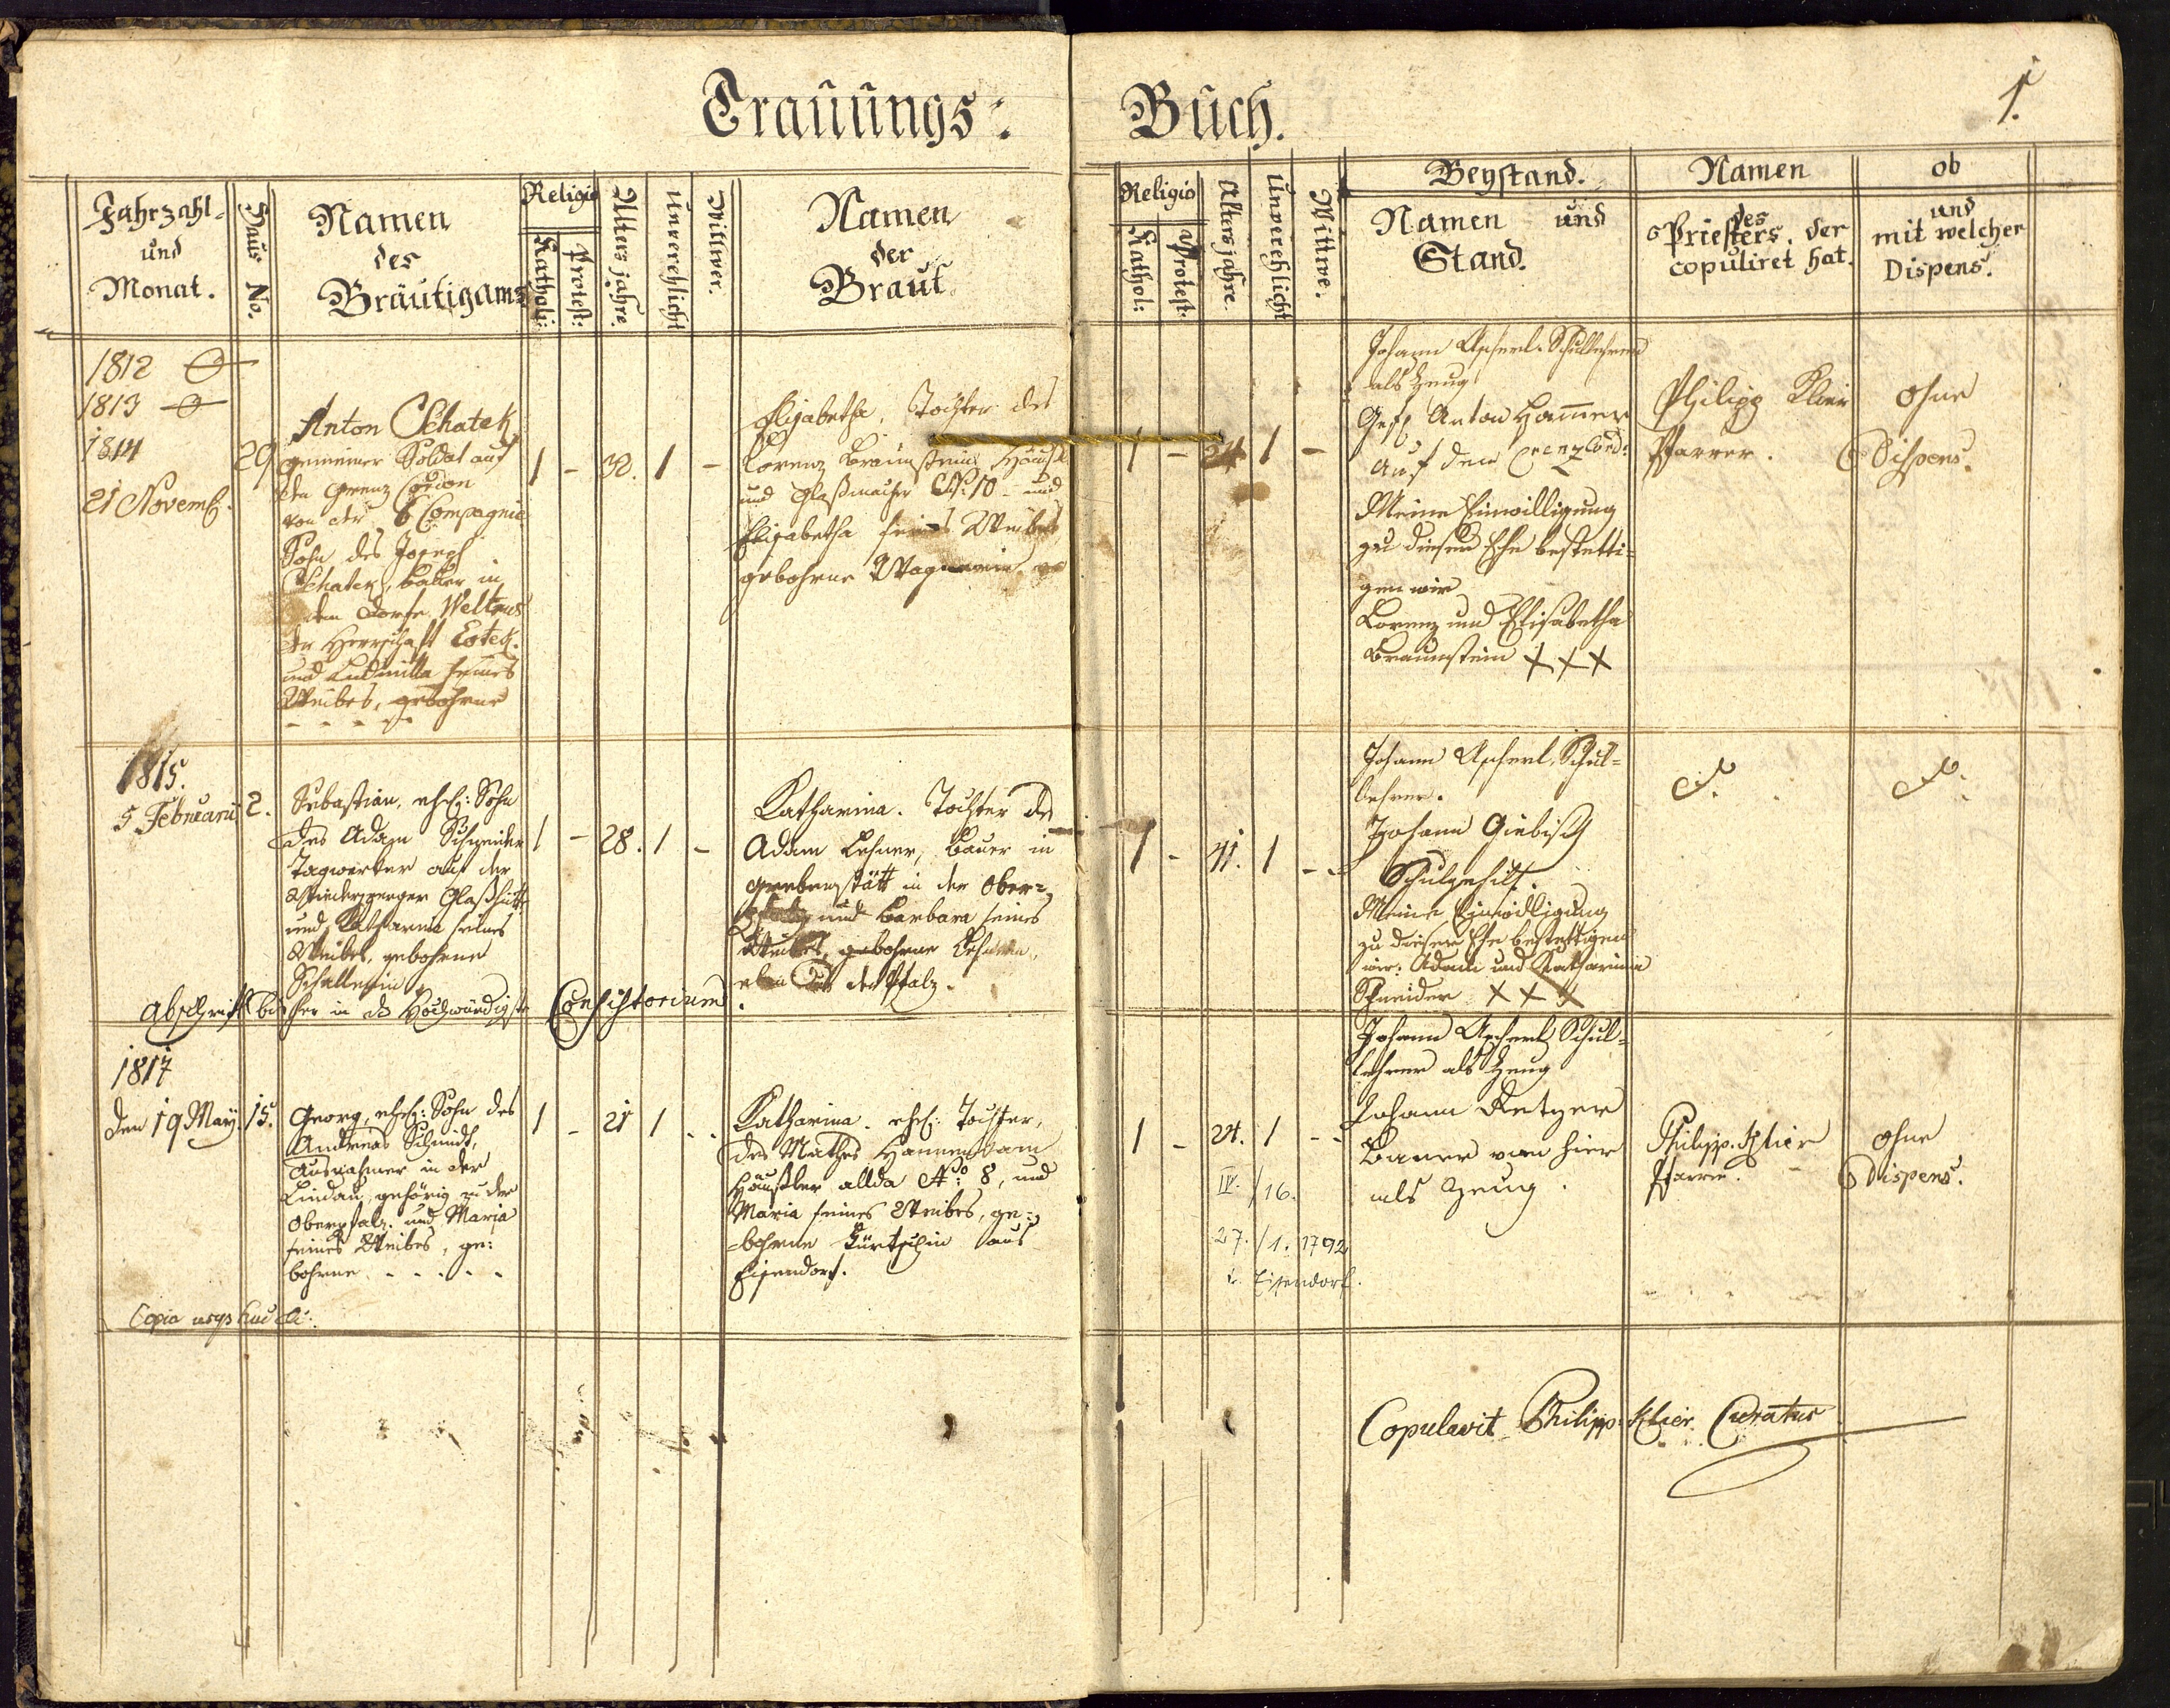 Trauungs: Buch.
1.
Jahrzahl
und
Monat.
Haus No.
Namen
des
Bräutigams
Religio
Kathol:
Protest:
Altersjahre.
Unverehlicht
Wittwer.
Namen
der
Braut
Religio
Kathol:
Protest:
Altersjahre.
Unverehlicht
Wittwe.
Beystand.
Namen und
Stand.
Namen
des
Priesters, der
copuliret hat.
ob
und
mit welcher
Dispens.
1812
1813
1814
21 Novemb.
29
Anton Schatek
gemeiner Soldat auf
den Grenz Cordon
von der 6 Compagnie
Sohn des Joseph
Schatek, Bauer in
dem Dorfe Weltrus
der Herrschaft
und Ludmilla seines
Weibes, gebohrne
1 - 30. 1 -
Elisabetha, Tochter des
Lorenz Braunstein Häusl.
und Glaßmacher No. 10 und
Elisabetha seines Weibes
gebohrne Wagnerin
1 - 24 1 -
Johann Schullehrer
als Zeug
Anton Hammer
Auf dem Grenz Cord:
Meine Einwilligung
zu dieser Ehe bestetti=
gen wir
Lorenz und Elisabetha
Braunstein XXX
Philipp Klier
Pfarrer.
ohne
Dispens.
1815.
5 Februarii
2.
Sebastian, ehel: Sohn
des Adam Schneider
Tagwerker auf der
Glaßhütte
und Katharina seines
Weibes, gebohrne
1 - 28. 1 -
Katharina. Tochter des
Adam Lehner, Bauer in
in der Ober=
pfalz und Barbara seines
Weibes, gebohrne
der Pfalz.
1 - 41. 1 -
Johann Schul=
lehrer.
Johann
Schulgehilf.
Meine Einwilligung
zu dieser Ehe bestettigen
wir: Adam und Katharina
Schneider XXX
Abschrift bis her in das Hochwürdigste Consistorium.
1817
den 19 Maij.
15.
Georg, ehel: Sohn des
Andreas Schmidt,
Ausnahmer in der
Lindau, gehörig zu der
Oberpfalz. und Maria
seines Weibes, ge:
bohrne - - - - -
1 - 21 1 - -
Katharina. ehel: Tochter,
des Mathes
Häußler allda No: 8, und
Maria seines Weibes, ge=
=bohrne aus
Eisendorf.
1 - 24. 1 - -
IV. / 16.
27. / 1. 1792
Eisendorf.
Johann Schul=
lehrer als Zeug
Johann Retzer
Bauer von hier
als Zeug.
Philipp Klier
Pfarrer.
ohne
Dispens.
Copia usque huc
Copulavit Philipp Klier Curatus